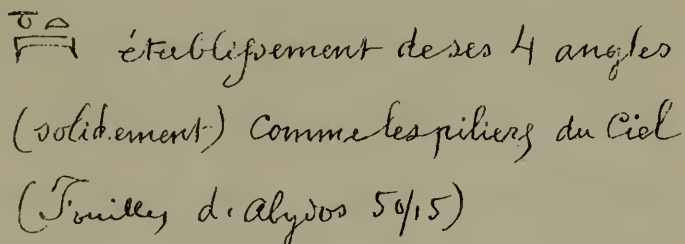 établissement de ses 4 angles
(solidement) Comme les piliers du Ciel
(Fouilles d'Abydos 50/15)